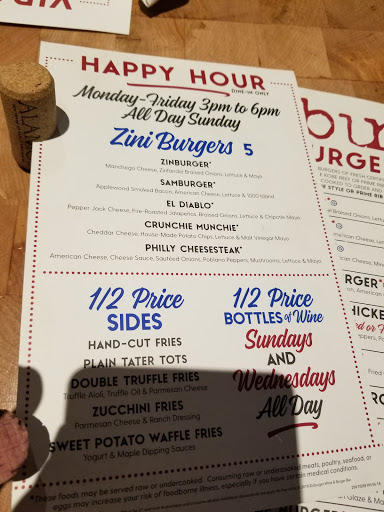 HAPPY HOUR
DINE-IN ONLY
Monday-Friday 3pm to 6pm
All Day Sunday
Zini Burgers 5
ZINBURGER*
Manchego Cheese, Zinfandel Braised Onions, Lettuce & Mayo
SAMBURGER*
Applewood Smoked Bacon, American Cheese, Lettuce & 1000 Island
EL DIABLO*
Pepper Jack Cheese, Fire-Roasted Jalapeños, Braised Onions, Lettuce & Chipotle Mayo
CRUNCHIE MUNCHIE*
Cheddar Cheese, House-Made Potato Chips, Lettuce & Malt Vinegar Mayo
PHILLY CHEESESTEAK*
American Cheese, Cheese Sauce, Sautéed Onions, Poblano Peppers, Mushrooms, Lettuce & Mayo
1/2 Price
SIDES
HAND-CUT FRIES
PLAIN TATER TOTS
DOUBLE TRUFFLE FRIES
Truffle Aioli, Truffle Oil & Parmesan Cheese
ZUCCHINI FRIES
Parmesan Cheese & Ranch Dressing
SWEET POTATO WAFFLE FRIES
Yogurt & Maple Dipping Sauces
1/2 Price
BOTTLES of Wine
Sundays
AND
Wednesdays
All Day
*These foods may be served raw or undercooked. Consuming raw or undercooked meats, poultry, seafood, or
eggs may increase your risk of foodborne illness, especially if you have certain medical conditions.
ALAN
bur
URGE